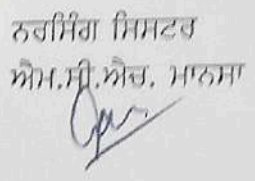 ਨਰਸਿੰਗ ਸਿਸਟਰ
ਐਮ.ਸੀ.ਐਚ. ਮਾਨਸਾ